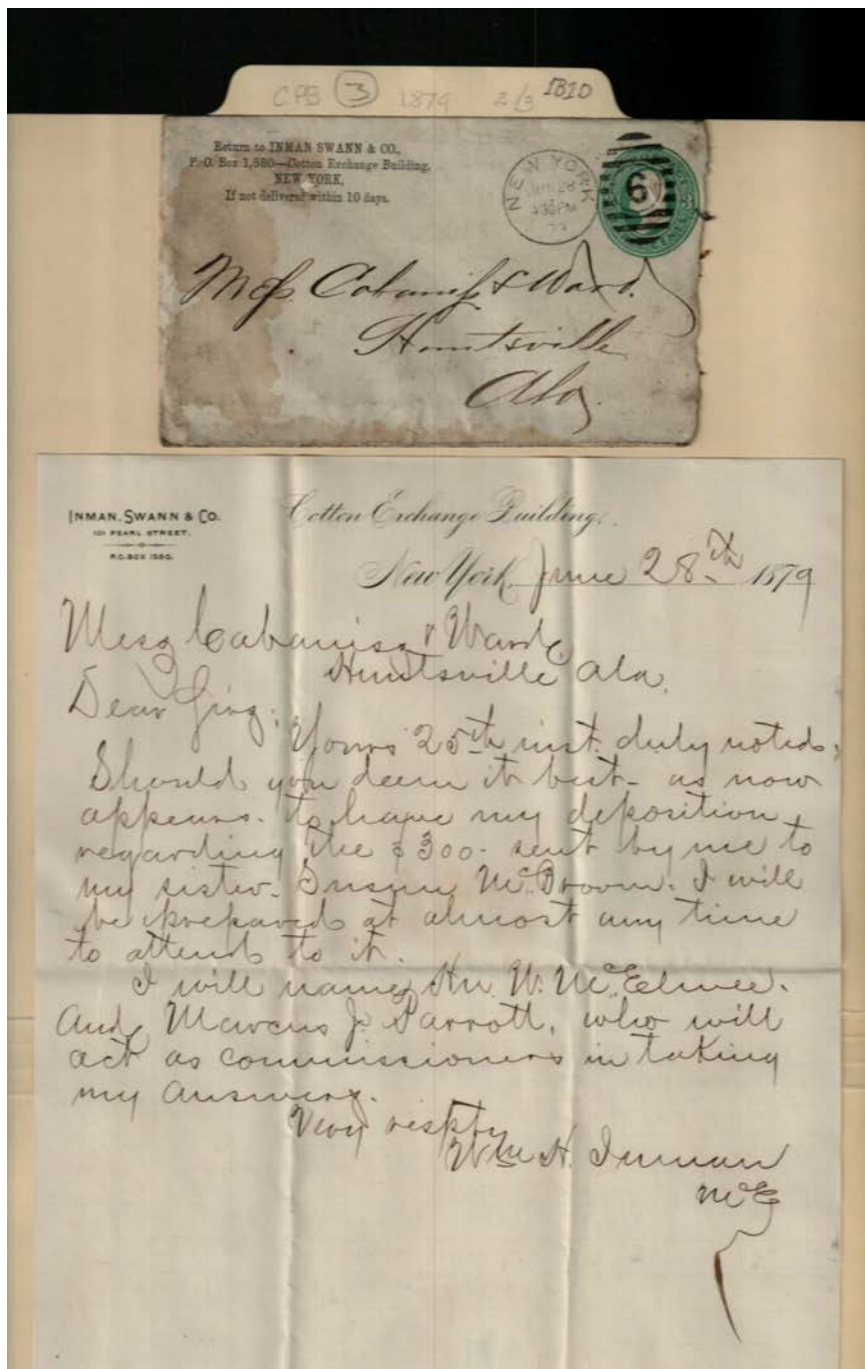 CPB 3 1879 2/3 1B1D
Return to INMAN SWANN & CO.,
P. O. Box 1,580—Cotton Exchange Building,
NEW YORK,
If not delivered within 10 days.
NEW YORK
JUN 28
4 30 PM
79
6
Mess. Cabaniss & Ward.
Huntsville
Ala.
INMAN, SWANN & CO.
101 PEARL STREET.
P.O. BOX 1580.
Cotton Exchange Building.
New York, June 28th 1879
Mess Cabaniss & Ward
Huntsville Ala.
Dear Sirs;
Yours 25th inst. duly noted.
Should you deem it best- as now
appears- to have my deposition
regarding the $300- sent by me to
my sister- Susan McBroom. I will
be prepared at almost any time
to attend to it.
I will name W. McElwee.
And Marcus J. Parrott, who will
act as commissioners in taking
my answers.
Very respty
Wm H. Inman
McE